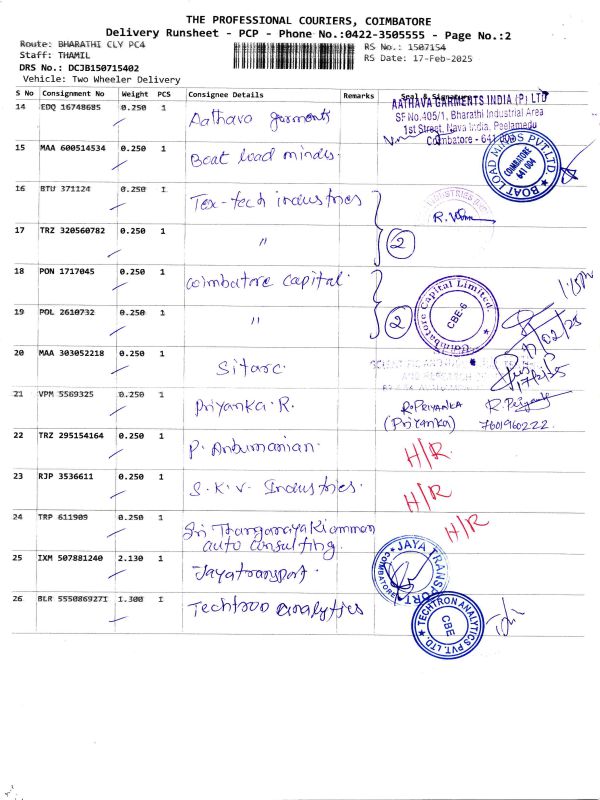 THE PROFESSIONAL COURIERS, COIMBATORE
Delivery Runsheet - PCP - Phone No.:0422-3505555 - Page No.:2
Route: BHARATHI CLY PC4
RS No.: 1507154
Staff: THAMIL
RS Date: 17-Feb-2025
DRS No.: DCJB150715402
Vehicle: Two Wheeler Delivery
S No Consignment No Weight PCS Consignee Details Remarks Seal & Signature
14 EDQ 16748685 0.250 1 Aathava garments
AATHAVA GARMENTS INDIA (P) LTD
SF No.405/1, Bharathi Industrial Area
1st Street, Nava India, Peelamedu
Coimbatore - 641 004
15 MAA 600514534 0.250 1 Boat load minds.
BOAT LOAD MINDS PVT LTD. COIMBATORE 641 004
16 BTU 371124 0.250 1 Tex-tech industries
INDUSTRIES
17 TRZ 320560782 0.250 1 " 2
18 PON 1717045 0.250 1 Coimbatore capital.
Coimbatore Capital Limited. CBE-6
1:15pm
19 POL 2610732 0.250 1 " 2
17/02/25
20 MAA 303052218 0.250 1 Sitarc.
17/2/25
21 VPM 5569325 0.250 1 Priyanka.R.
R.PRIYANKA
(Priyanka)
7601960222.
22 TRZ 295154164 0.250 1 P. Anbumanian. H/R
23 RJP 3536611 0.250 1 S.K.V. Industries. H/R
24 TRP 611909 0.250 1 Sri Thanganayakiamman
auto consulting. H/R
25 IXM 507881240 2.130 1 Jayatransport.
JAYA TRANSPORT COIMBATORE
26 BLR 5550869271 1.300 1 Techtron analytics
TECHTRON ANALYTICS PVT. LTD. CBE